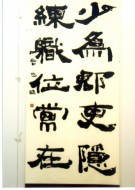 少為郡吏隱
練職位常在